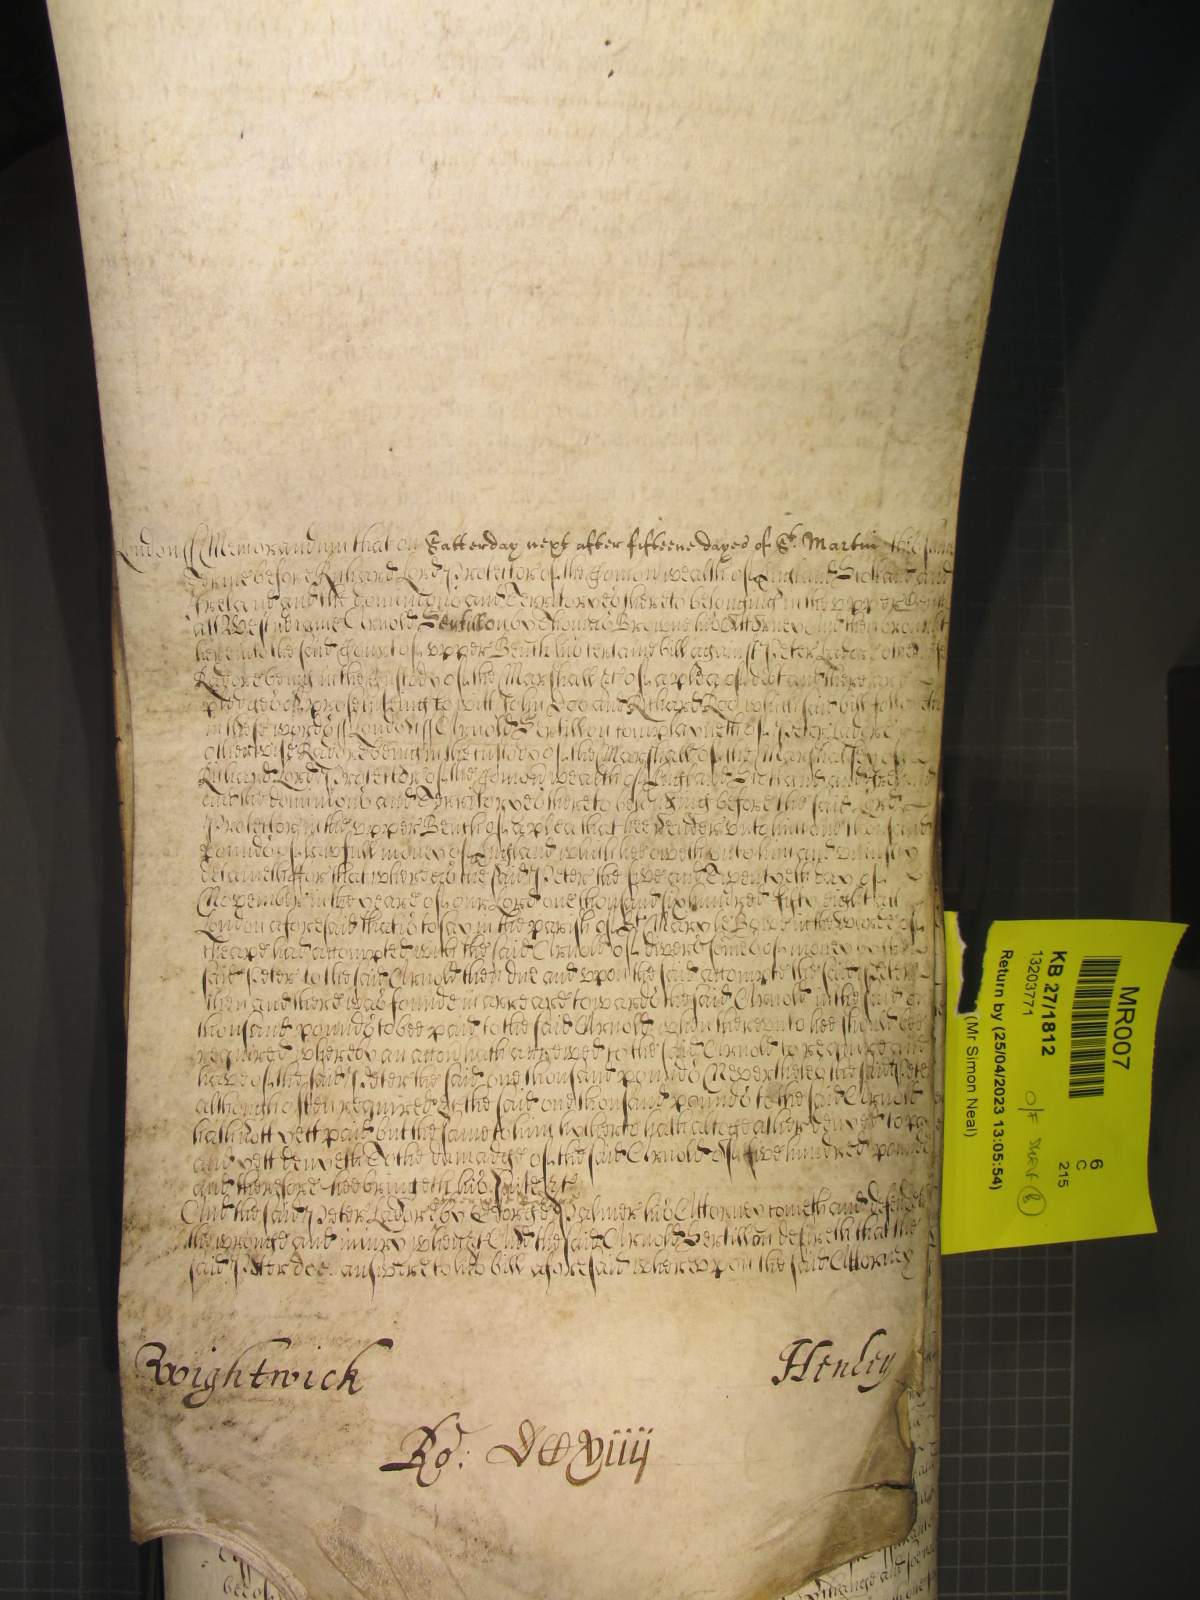 London ss Memorandum that on Satterday next after fifteene dayes of St. Martin the same
Terme before Richard Lord Protector of the Comon wealth of England Scotland and
Ireland and the dominions and Territoryes thereto belonging in the upper Bench
att Westm came Arnold Bertillon by Thomas Browne his Attorney and then brought
here into the said Court of upper Bench his certaine bill against Peter Ladore otherwise
Radore being in the custody of the Marshall &c of a plea of debt and there are
pledges of prosecuteing to witt John Doo and Richard Roo which said bill followeth
in these words ss London ss Arnold Bertillon complayneth of Peter Ladore
otherwise Radore being in the custody of the Marshall of the Marshalsey of
Richard Lord Protector of the Comon wealth of England Scotland and Ireland
and the dominions and Territoryes thereto belonging before the said Lord
Protector in the upper Bench of a plea that hee render unto him one thousand
pounds of lawfull money of England which hee oweth unto him and uniustly
detaineth for that whereas the said Peter the five and Twentyeth day of
November in the yeare of our Lord one thousand six hundred fifty eight att
London aforesaid that is to say in the parish of St Mary le Bowe in the warde of
Cheape had accompted with the said Arnold of divers somes of money
said Peter to the said Arnold then due and upon the said accompte the said Peter
then and there was founde in arreare towards the said Arnold in the said one
thousand pounds to bee paid to the said Arnold when thereunto hee should bee
required whereby an accon hath accrewed to the said Arnold to require and
have of the said Peter the said one thousand pounds Neverthelesse the said Peter
although often required &c the said one thousand pounds to the said Arnold
hath nott yett paid but the same to him hitherto hath altogeather denyed to pay
and yett denyeth To the damadge of the said Arnold of five hundred pounds
and therefore hee bringeth his Suite &c
And the said Peter Ladore by George Palmer his Attorney cometh and defendeth
the wronge and iniury when &c And the said Arnold Bertillon desireth that the
said Peter doe answere to his bill aforesaid whereupon the said Attorney
Wightwick Henley
Ro: DCCxiiij
MR007
6
C
215
KB 27/1812
13203771
O/F
Return by (25/04/2023 13:05:54)
(Mr Simon Neal)